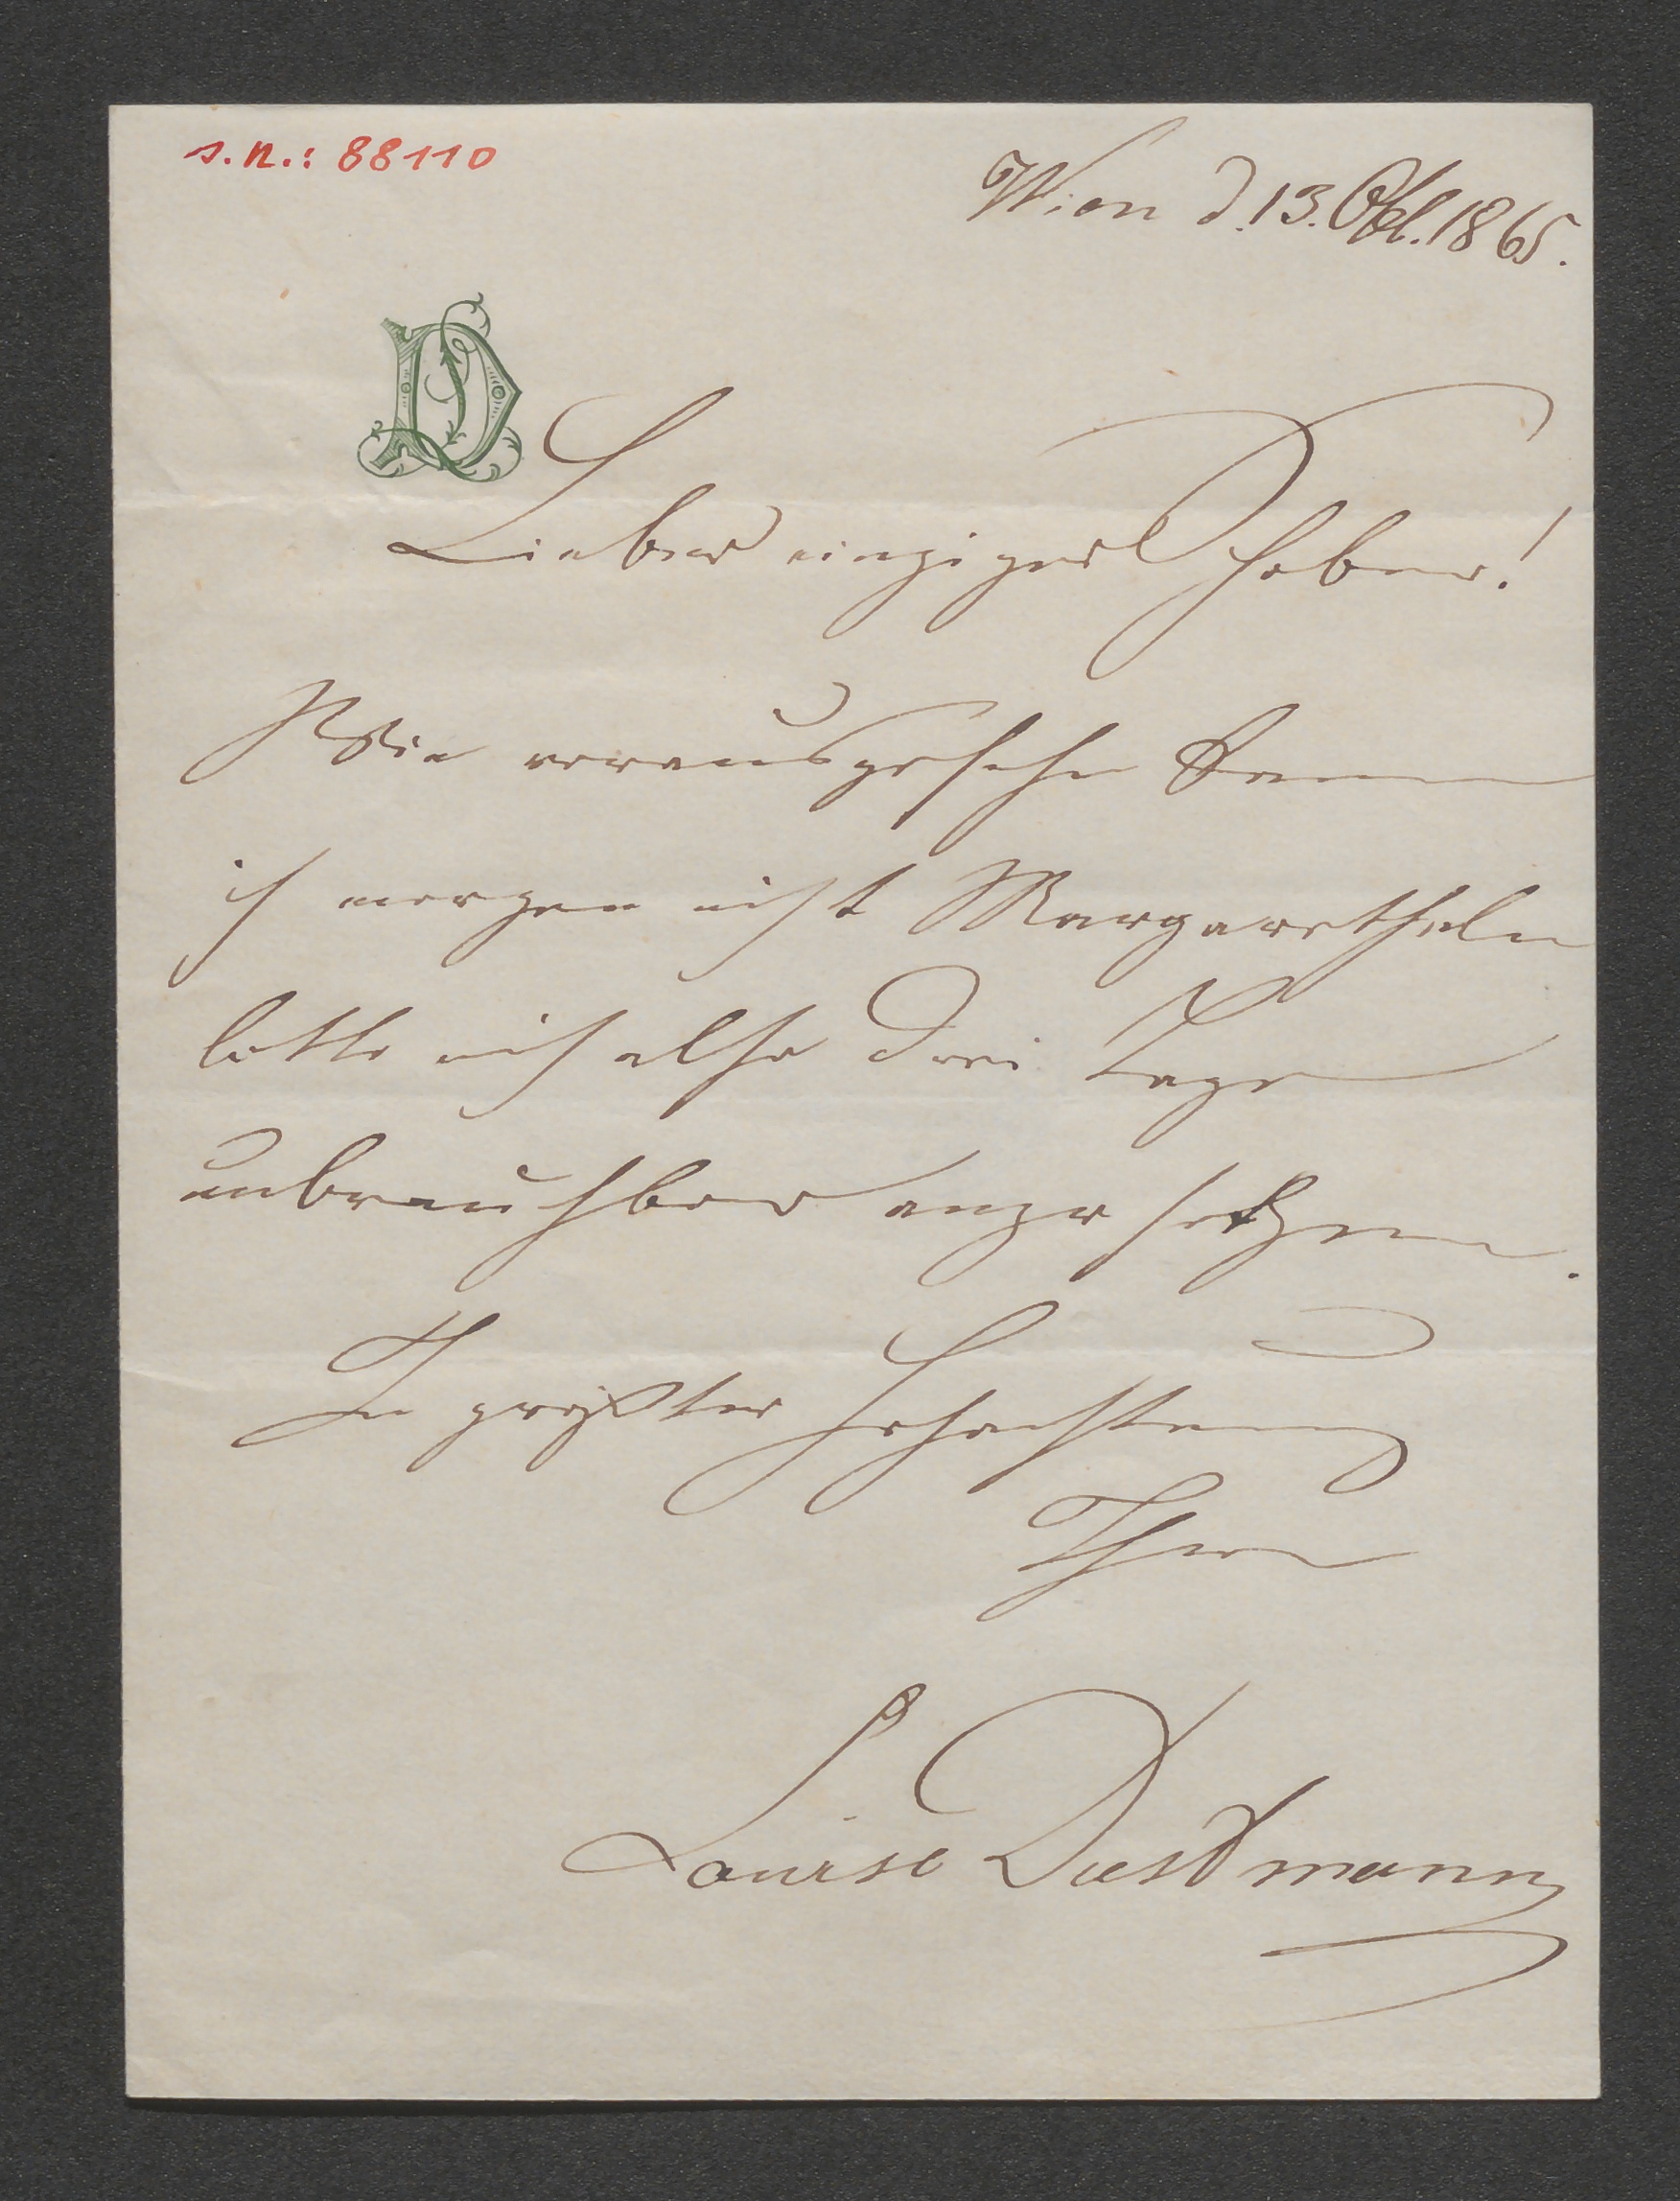 s.n.: 88110
Wien d. 13. Okt. 1865.
D
Lieber einziger Schober!
Wie vorausgesehen kann
ich morgen nicht Margaretheln
bitte mich also drei Tage
unbrauchbar anzusetzen.
In größter Hochachtung
Ihre
Louise Dustmann